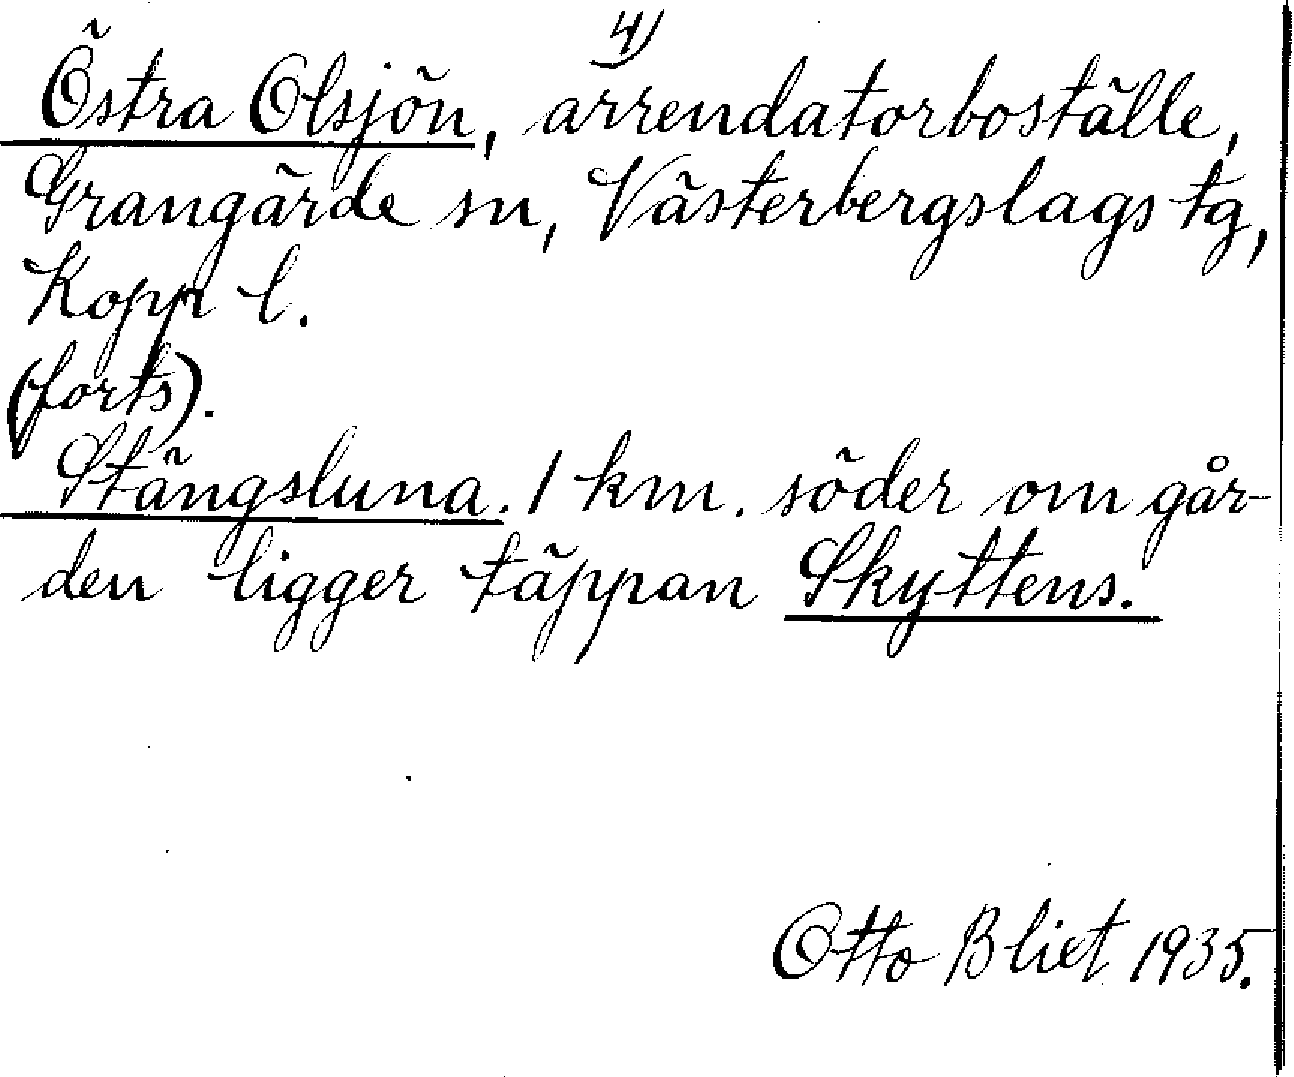 4)
Östra Olsjön, arrendatorboställe,
Grangärde sn, Västerbergslags tg,
Kopp l.
(forts).
Stängsluna. 1 km. söder om går-
den ligger täppan Skyttens.
Otto Bliet 1935.